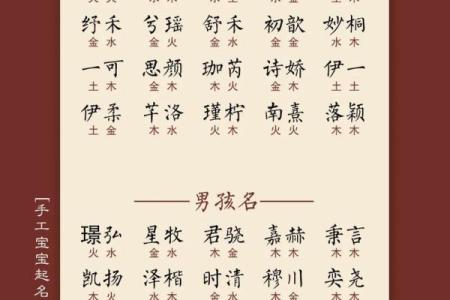 纾禾 兮瑶 舒禾 初歆 妙桐
金水 金火 金水 金金 水木
一可 思颜 珈芮 诗娇 伊一
土木 金木 木木 金木 土土
伊柔 芊洛 瑾柠 南熹 落颖
土金 木水 火木 火火 木木
男孩名
璟弘 星牧 君骁 嘉赫 秉言
火水 金水 木木 木木 木木
凯扬 泽楷 时清 穆川 奕尧
木火 水木 金水 水金 木土
[手工宝宝起名